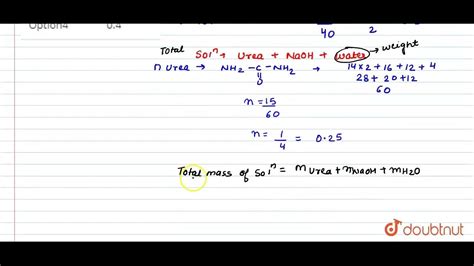 Option4 0.4
40 2
Total Solⁿ + Urea + NaOH + water → weight
n urea → NH₂ - C - NH₂ → 14×2 + 16 + 12 + 4
O 28 + 20 + 12
60
n = 15
60
n = 1 = 0.25
4
Total mass of Solⁿ = m urea + mNaOH + mH2O
doubtnut